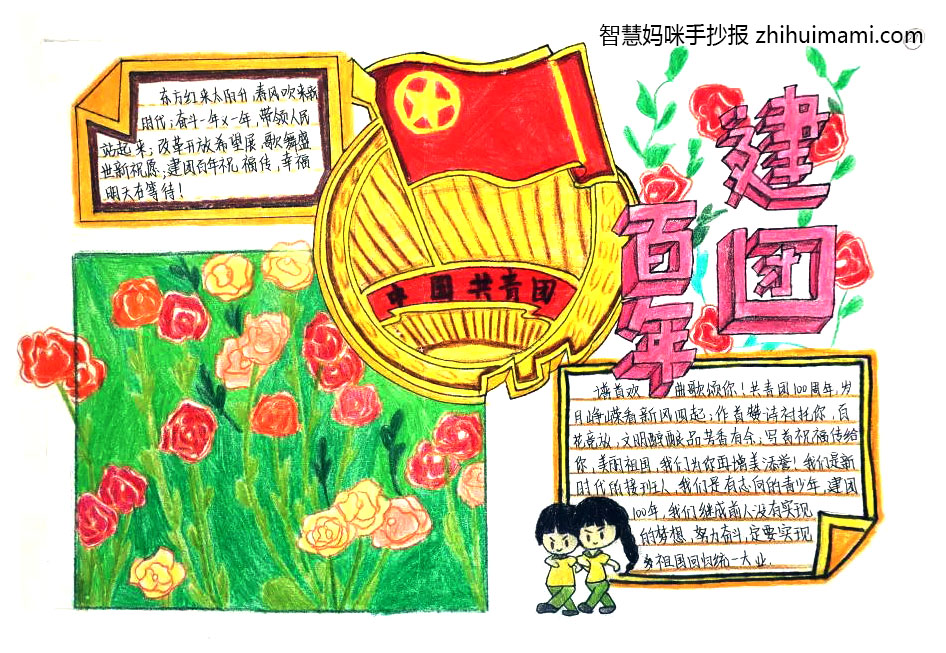 智慧妈咪手抄报 zhihuimami.com
建团
百年
中国共青团
东方红来太阳升,春风吹来我
时代;奋斗一年又一年,带领人民
站起来;改革开放希望展,歌舞盛
世新祝愿;建团百年祝福传,幸福
明天在等待!
谱首欢 曲歌颂你!共青团100周年,岁
月峥嵘看新风四起;作首赞诗衬托你,百
花竞放,文明醇酿品芳香有余;写首祝福传给
你,美丽祖国,我们为你再增美添誉!我们是新
时代的接班人,我们是有志向的青少年,建团
100年,我们继成前人没有实现
的梦想,努力奋斗,定要实现
祖国回归统一大业.